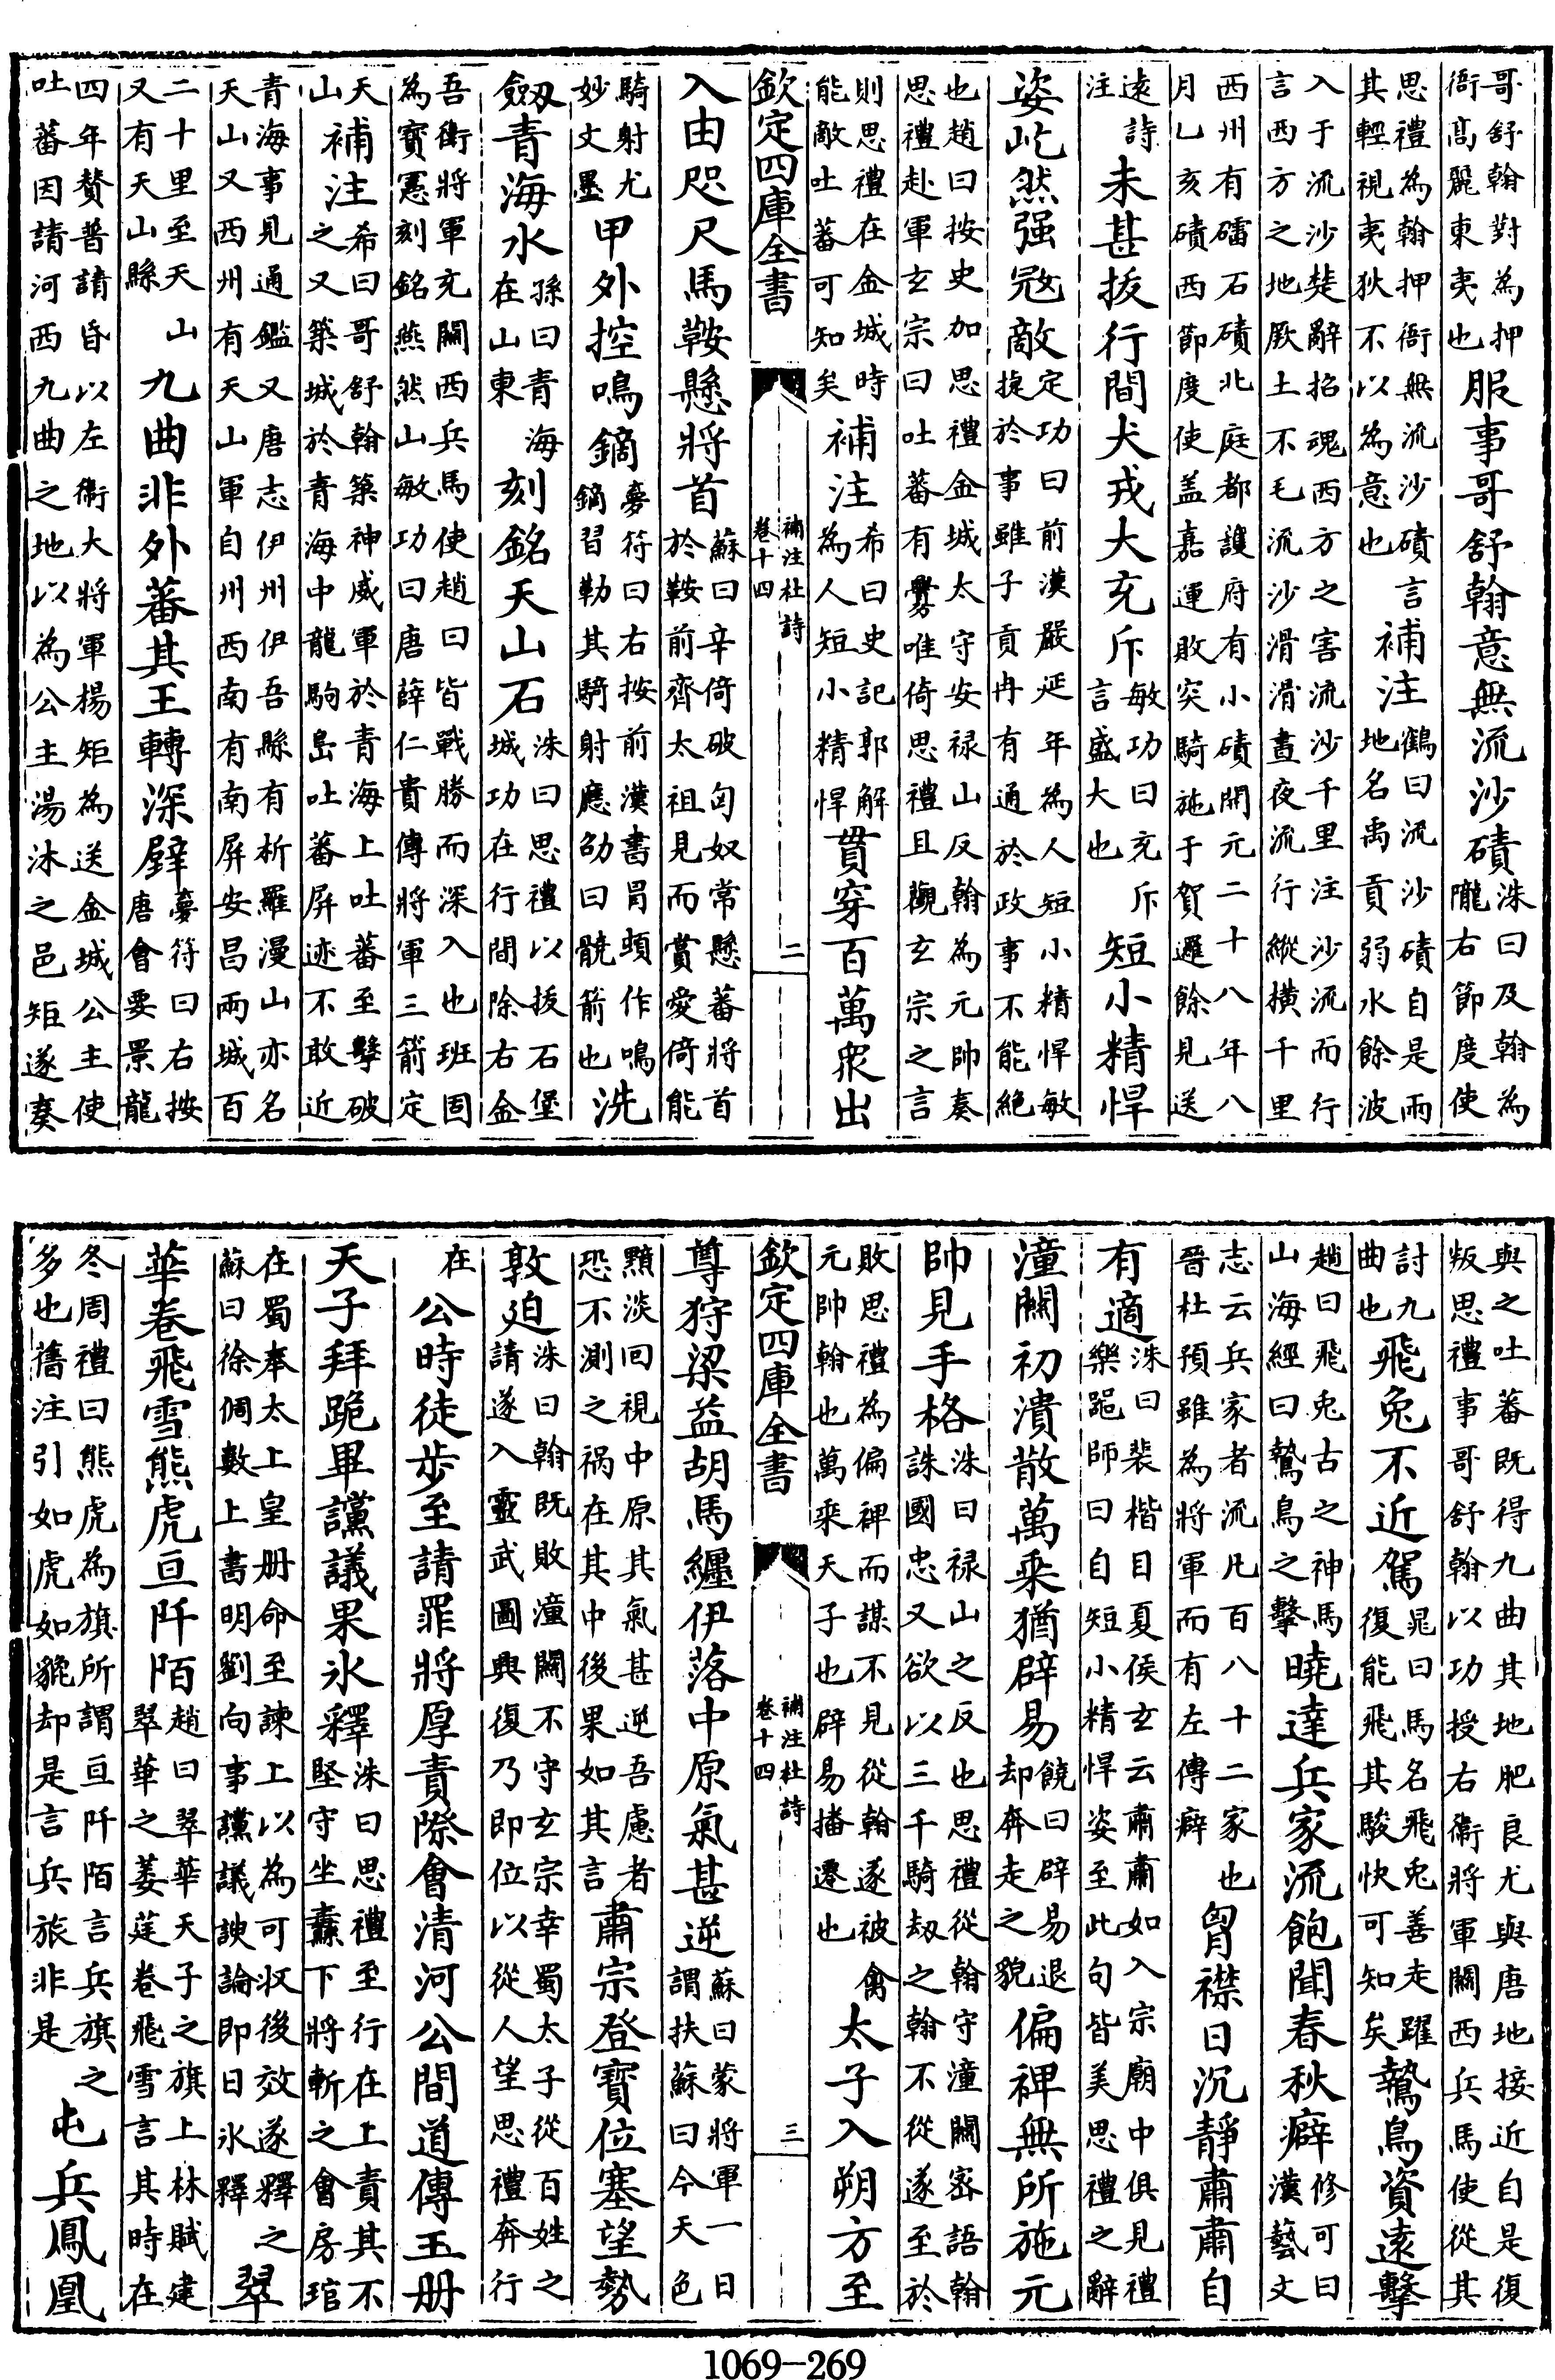 哥舒翰對為押
衙髙麗東夷也
服事哥舒翰意無流沙磧
洙曰及翰為
隴右節度使
思禮為翰押衙無流沙磧言
其輕視夷狄不以為意也
補注
鶴曰流沙磧自是兩
地名禹貢弱水餘波
入于流沙楚辭招魂西方之害流沙千里注沙流而行
言西方之地厥土不毛流沙滑滑晝夜流行縱横千里
西州有礌石磧北庭都護府有小磧開元二十八年八
月乙亥磧西節度使盖嘉運敗突騎施于賀邏餘見送
逺詩
注
未甚拔行間犬戎大充斥
敏功曰充斥
言盛大也
短小精悍
姿屹然强冦敵
定功曰前漢嚴延年為人短小精悍敏
捷於事雖子貢冉有通於政事不能絶
也趙曰按史加思禮金城太守安禄山反翰為元帥奏
思禮赴軍玄宗曰吐蕃有釁唯倚思禮且觀玄宗之言
則思禮在金城時
能敵吐蕃可知矣
補注
希曰史記郭解
為人短小精悍
貫穿百萬衆出
欽定四庫全書
補注杜詩
卷十四
二
入由咫尺馬鞍懸將首
蘇曰辛倚破匈奴常懸蕃將首
於鞍前齊太祖見而賞愛倚能
騎射尤
妙文墨
甲外控鳴鏑
夢符曰右按前漢書冒頓作鳴
鏑習勒其騎射應劭曰髐箭也
洗
劔青海水
孫曰青海
在山東
刻銘天山石
洙曰思禮以拔石堡
城功在行間除右金
吾衛將軍充關西兵馬使趙曰皆戰勝而深入也班固
為竇憲刻銘燕然山敏功曰唐薛仁貴傳將軍三箭定
天
山
補注
希曰哥舒翰築神威軍於青海上吐蕃至擊破
之又築城於青海中龍駒島吐蕃屏迹不敢近
青海事見通鑑又唐志伊州伊吾縣有析羅漫山亦名
天山又西州有天山軍自州西南有南屏安昌兩城百
二十里至天山
又有天山縣
九曲非外蕃其王轉深壁
夢符曰右按
唐會要景龍
四年賛普請昏以左衛大將軍楊矩為送金城公主使
吐蕃因請河西九曲之地以為公主湯沐之邑矩遂奏
與之吐蕃既得九曲其地肥良尤與唐地接近自是復
叛思禮事哥舒翰以功授右衛將軍關西兵馬使從其
討九
曲也
飛兔不近駕
晁曰馬名飛兔善走躍
復能飛其駿快可知矣
鷙鳥資逺擊
趙曰飛兎古之神馬
山海經曰鷙鳥之擊
曉達兵家流飽聞春秋癖
修可曰
漢藝文
志云兵家者流凡百八十二家也
晉杜預雖為將軍而有左傳癖
胷襟日沉靜肅肅自
有適
洙曰裴楷目夏侯玄云肅肅如入宗廟中俱見禮
樂器師曰自短小精悍姿至此句皆美思禮之辭
潼關初潰散萬乘猶辟易
饒曰辟易退
却奔走之貌
偏裨無所施元
帥見手格
洙曰禄山之反也思禮從翰守潼關宻語翰
誅國忠又欲以三千騎刼之翰不從遂至於
敗思禮為偏裨而謀不見從翰遂被禽
元帥翰也萬乘天子也辟易播遷也
太子入朔方至
欽定四庫全書
補注杜詩
卷十四
三
尊狩梁益胡馬纏伊落中原氣甚逆
蘇曰蒙將軍一日
謂扶蘇曰今天色
黯淡回視中原其氣甚逆吾慮者
恐不測之禍在其中後果如其言
肅宗登寳位塞望勢
敦廹
洙曰翰既敗潼關不守玄宗幸蜀太子從百姓之
請遂入靈武圖興復乃即位以從人望思禮奔行
在
公時徒步至請罪將厚責際會清河公間道傳玉册
天子拜跪畢讜議果氷釋
洙曰思禮至行在上責其不
堅守坐纛下將斬之會房琯
在蜀奉太上皇册命至諫上以為可收後效遂釋之
蘇曰徐倜數上書明劉向事讜議諛論即日氷釋
翠
華卷飛雪熊虎亘阡陌
趙曰翠華天子之旗上林賦建
翠華之葳蕤卷飛雪言其時在
冬周禮曰熊虎為旗所謂亘阡陌言兵旗之
多也舊注引如虎如貔却是言兵旅非是
屯兵鳳凰
1069-269